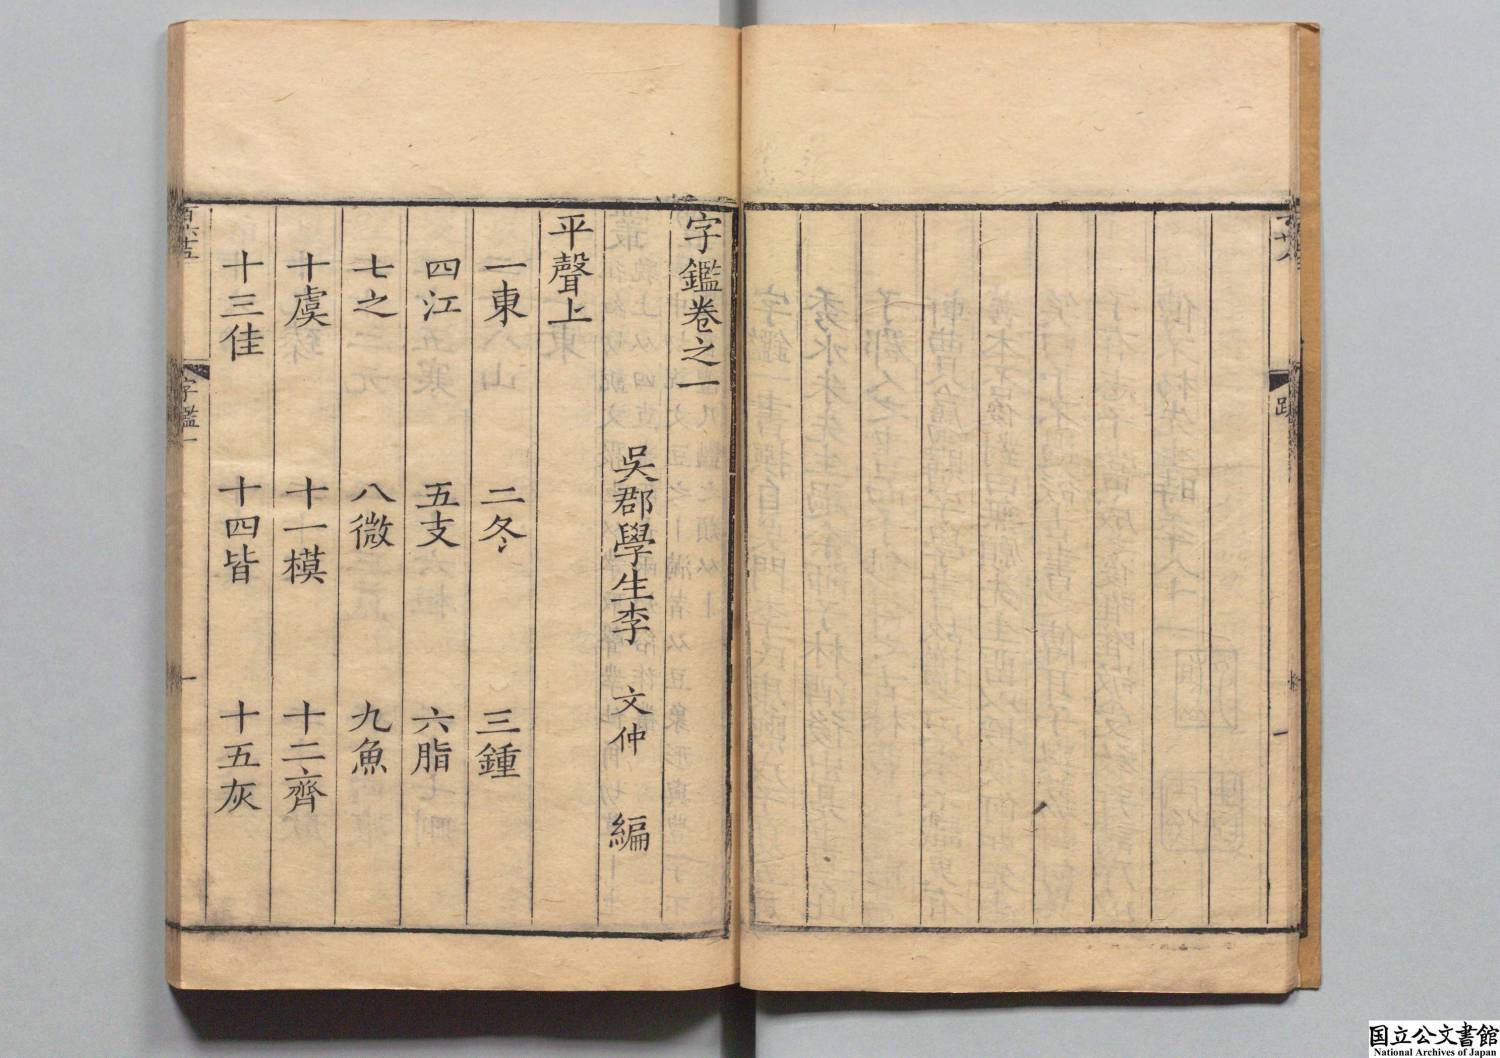 字鑑卷之一
吳郡學生李　文仲　編
平聲上
一東　二冬　三鍾
四江　五支　六脂
七之　八微　九魚
十虞　十一模　十二齊
十三佳　十四皆　十五灰
字鑑一
一
跋
一
国立公文書館
National Archives of Japan